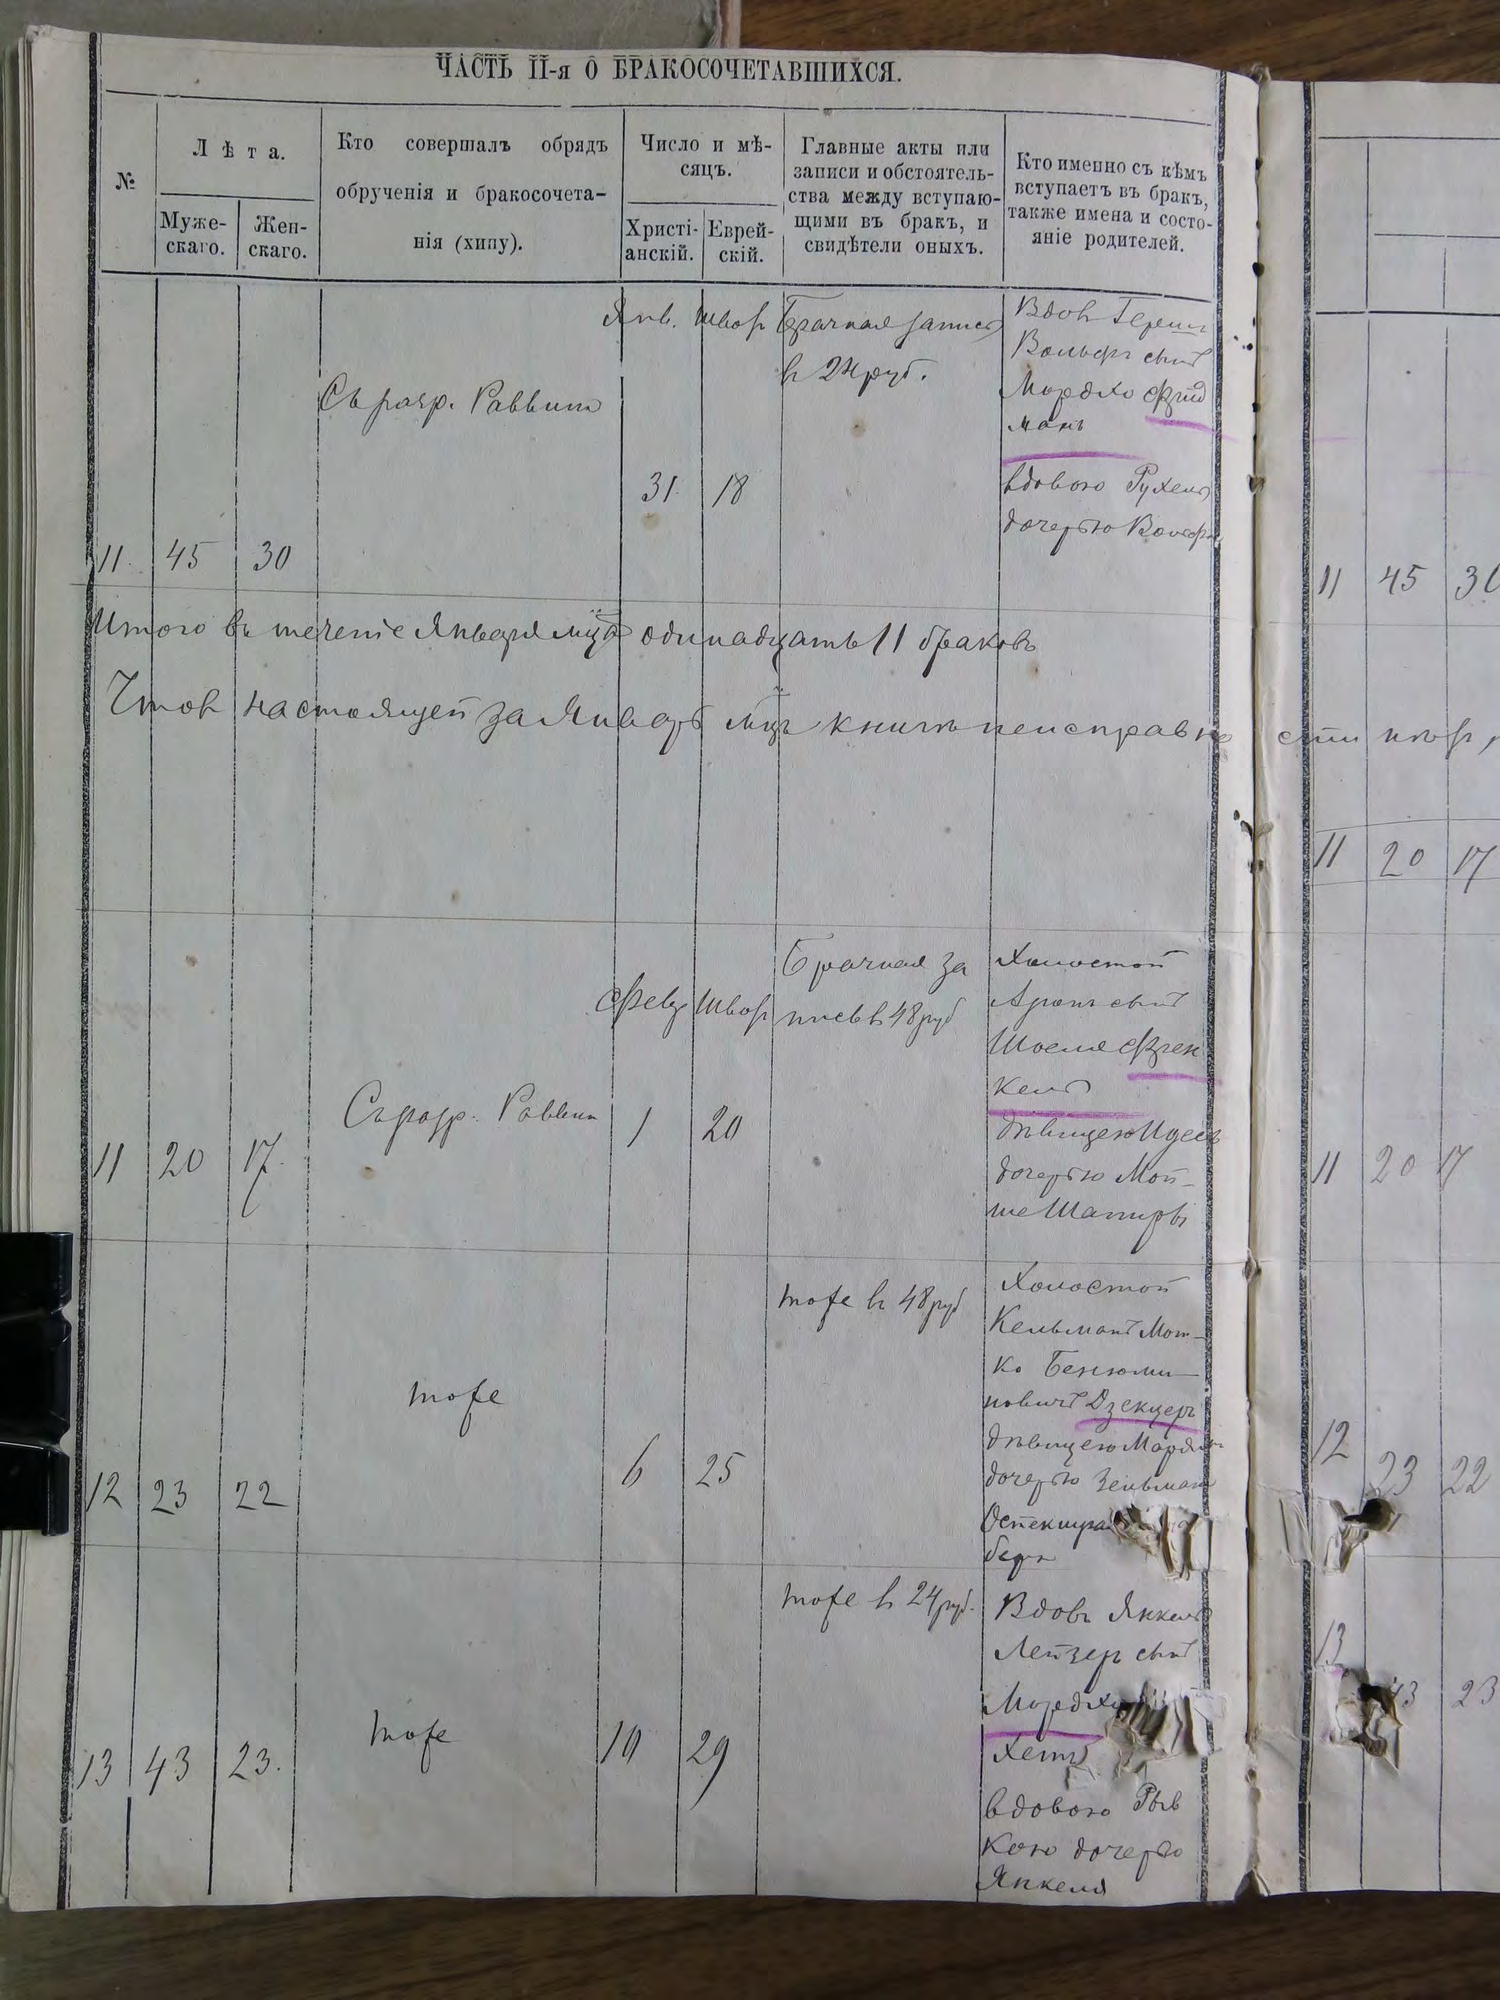 ЧАСТЬ II-я О БРАКОСОЧЕТАВШИХСЯ.
№
Лѣта.
Муже-
скаго.
Жен-
скаго.
Кто совершалъ обрядъ
обрученія и бракосочета-
нія (хипу).
Число и мѣ-
сяцъ.
Христі-
анскій.
Еврей-
скій.
Главные акты или
записи и обстоятель-
ства между вступаю-
щими въ бракъ, и
свидѣтели оныхъ.
Кто именно съ кѣмъ
вступаетъ въ бракъ,
также имена и состо-
яніе родителей.
11 45 30
Съ разр. Раввинъ
Янв. Шват
31 18
Брачная запись
въ 24 руб.
Вдовъ Герш
Вольфъ сынъ
Мордхо Фрид
манъ
вдовою Рухель
дочерью Вольфа
Итого въ теченіе Января мца одинадцать 11 браковъ
Что въ настоящей за Январь мцъ книгѣ неисправно
11 20 17
Съ разр. Раввинъ
Февр Шват
1 20
Брачная за
пись въ 48 руб
Холостой
Аронъ сынъ
Шоеля Френ
кель
дѣвицею Идесъ
дочерью Мой-
ше Шапиры
12 23 22
тоже
6 25
тоже въ 48 руб
Холостой
Кельманъ Мот-
ко Бенюми-
новичъ Дзекцеръ
дѣвицею
дочерью Зельмана
беръ
13 43 23.
тоже
10 29
тоже въ 24 руб.
Вдовъ Янкель
Лейзеръ сынъ
Мордхи
вдовою Рыв
кою дочерью
Янкеля
11 45
сти
11 20 17
11 20 17
12 23 22
13 43 23